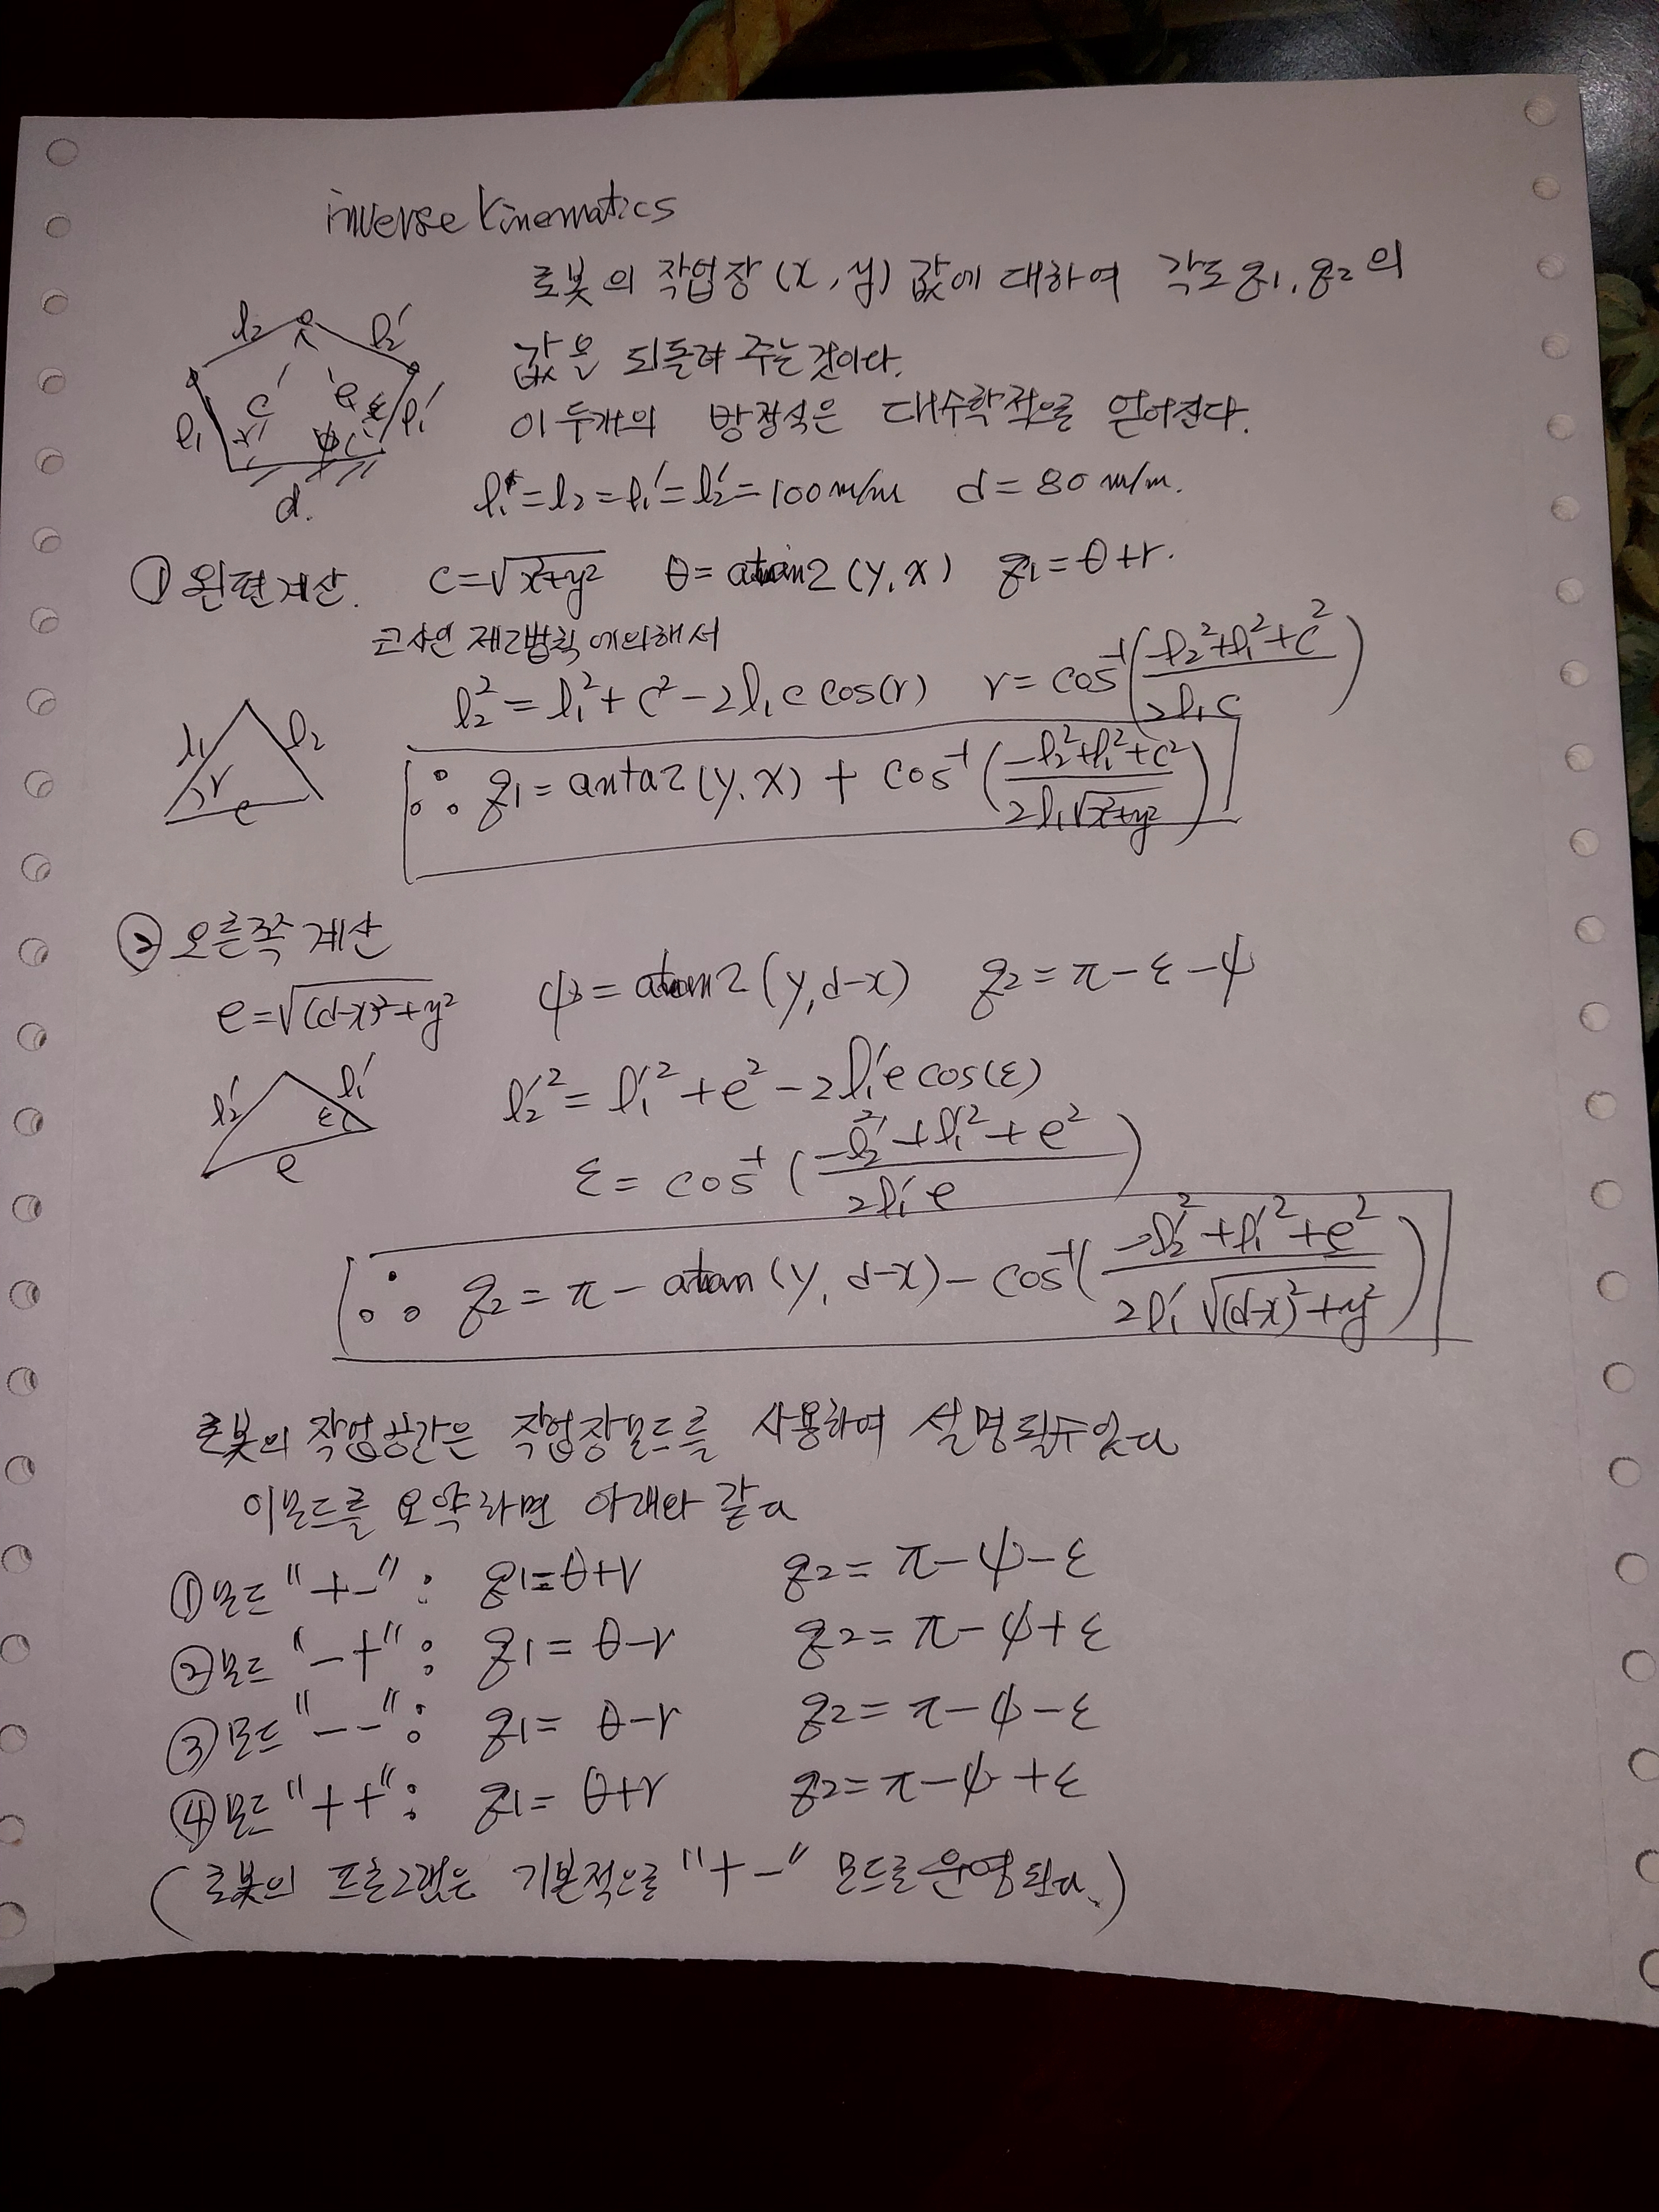 inverse kinematics
로봇의 작업장 (x, y) 값에 대하여 각도 q1, q2 의
값을 되돌려 주는것이다.
이 두개의 방정식은 대수학적으로 얻어진다.
l2 l2′
l1 c e ε l1′
r ψ
d.
l1 = l2 = l1′ = l2′ = 100 m/m d = 80 m/m.
① 왼편계산. c = √x²+y² θ = atan2 (y, x) q1 = θ + r.
코사인 제2법칙에의해서
l2² = l1² + c² - 2 l1 c cos(r) r = cos⁻¹( (-l2² + l1² + c²) / 2 l1 c )
l1 l2
r
c
∴ q1 = anta2 (y, x) + cos⁻¹ ( (-l2² + l1² + c²) / 2 l1 √x²+y² )
② 오른쪽 계산
e = √(d-x)² + y² ψ = atan2 (y, d-x) q2 = π - ε - ψ
l2′ l1′
ε
e
l2′² = l1′² + e² - 2 l1′ e cos(ε)
ε = cos⁻¹ ( (-l2′² + l1′² + e²) / 2 l1′ e )
∴ q2 = π - atan (y, d-x) - cos⁻¹ ( (-l2′² + l1′² + e²) / 2 l1′ √(d-x)² + y² )
로봇의 작업공간은 작업장모드를 사용하여 설명될수있다
이모드를 요약하면 아래와 같다
① 모드 "+-" : q1 = θ+r q2 = π - ψ - ε
② 모드 "-+" : q1 = θ - r q2 = π - ψ + ε
③ 모드 "--" : q1 = θ - r q2 = π - ψ - ε
④ 모드 "++" : q1 = θ+r q2 = π - ψ + ε
( 로봇의 프로그램은 기본적으로 "+-" 모드로 운영된다. )